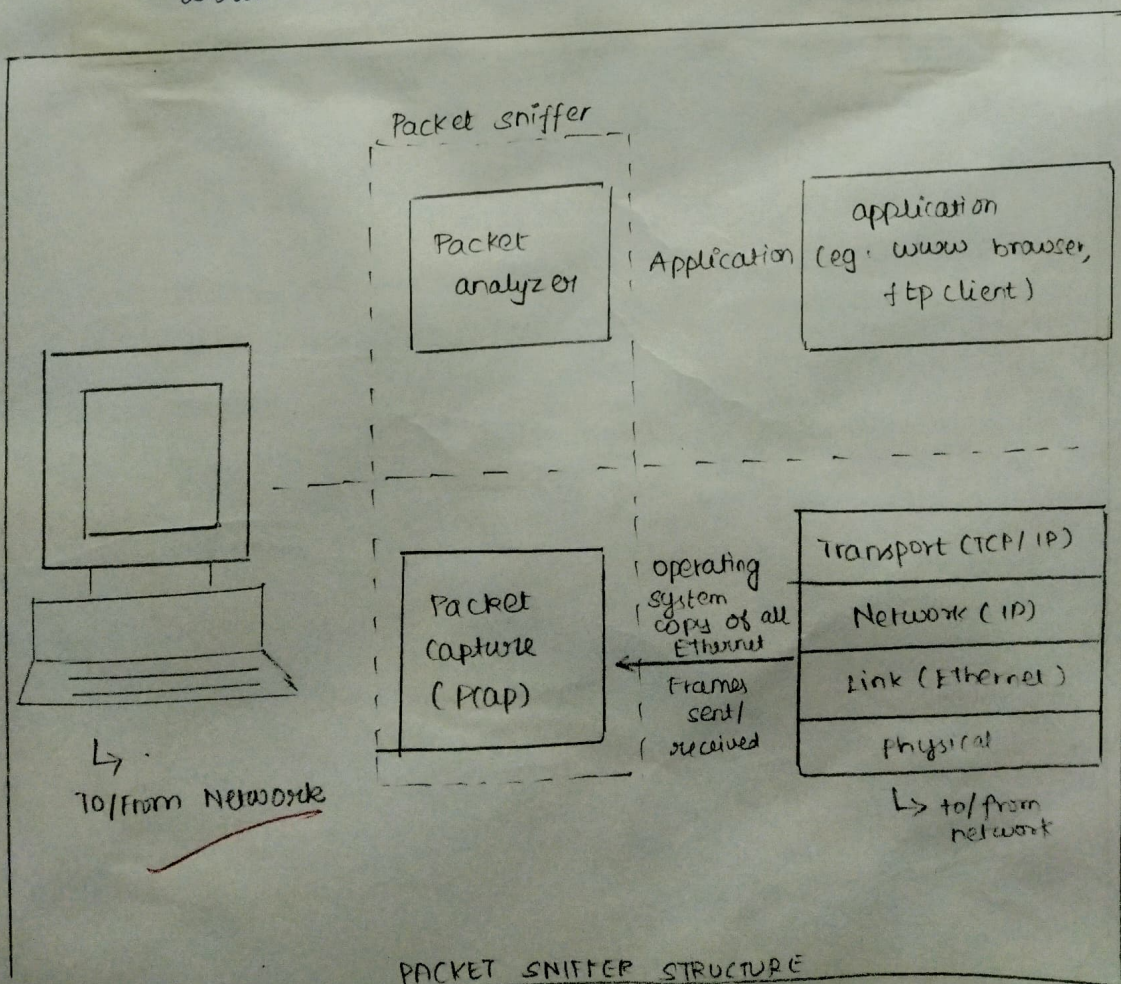 Packet sniffer
Packet
analyzer
Application
application
(eg. www browser,
ftp client)
Packet
capture
(Pcap)
operating
system
copy of all
Ethernet
Frames
sent/
received
Transport (TCP/IP)
Network (IP)
Link (Ethernet)
Physical
To/From Network
to/from
network
PACKET SNIFFER STRUCTURE